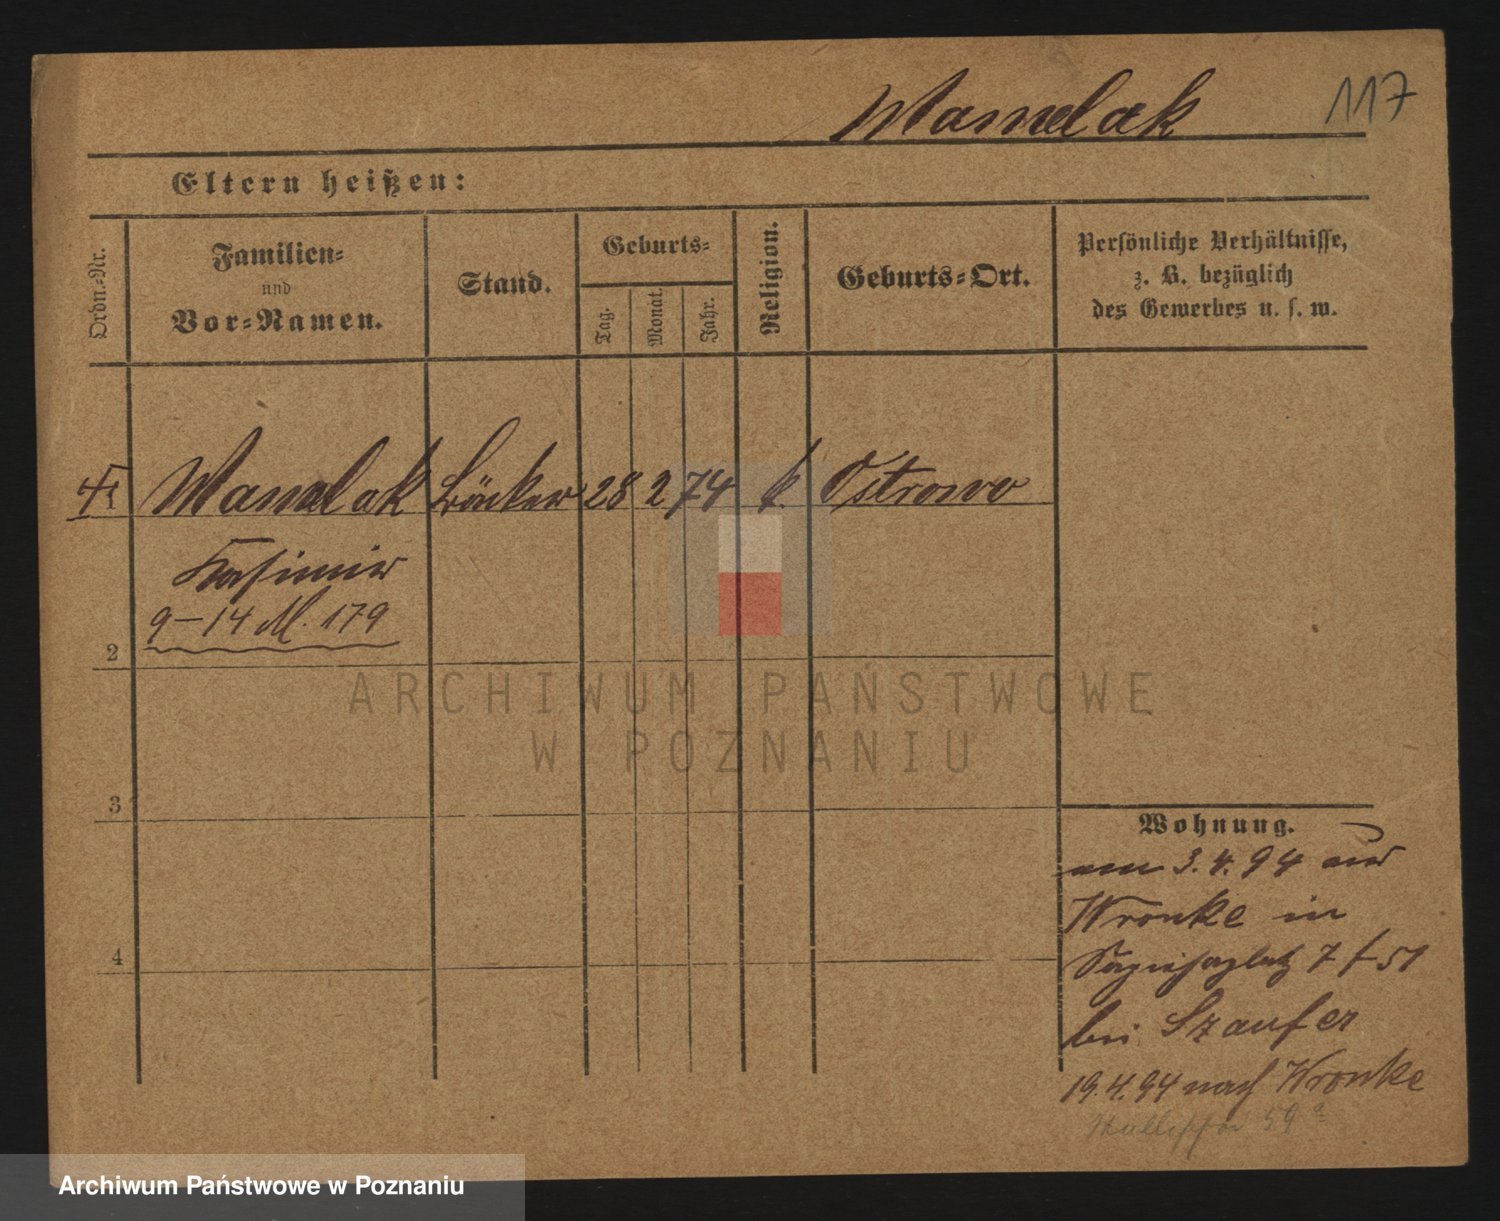 Wamelak
117
Eltern heißen:
Ordn.-Nr.
Familien-
und
Vor-Namen.
Stand.
Geburts-
Tag.
Monat.
Jahr.
Religion.
Geburts-Ort.
Persönliche Verhältnisse,
z. B. bezüglich
des Gewerbes u. s. w.
1 Wamelak Bäcker 28 2 74 k. Ostrowo
Kasimir
9-14 M. 179
2
3
4
Wohnung.
am 3.4.94 aus
Wronke in
Sapiehaplatz 7 f 51
bei Szaufer
19.4.94 nach Wronke
59a
ARCHIWUM PAŃSTWOWE
W POZNANIU
Archiwum Państwowe w Poznaniu